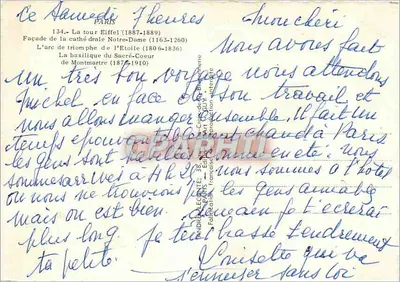 Ce Samedi 7 heures
Mon chéri
PARIS
134.- La tour Eiffel (1887-1889)
Façade de la cathédrale Notre-Dame (1163-1260)
L'arc de triomphe de l'Etoile (1806-1836)
La basilique du Sacré-Coeur
de Montmartre (1876-1910)
nous avons fait
un très bon voyage nous attendons
Michel, en face de son travail et
nous allons manger ensemble. Il fait un
temps épouvantablement chaud à Paris
les gens sont habillés comme en été. nous
sommes arrivés à 4h20 nous sommes à l'hotel
ou nous ne trouvons pas les gens aimable
mais on est bien. demain je t'écrirai
plus long je t'embrasse tendrement
ta petite.
Louisette qui va
s'ennuier sans toi
CPARPHIL